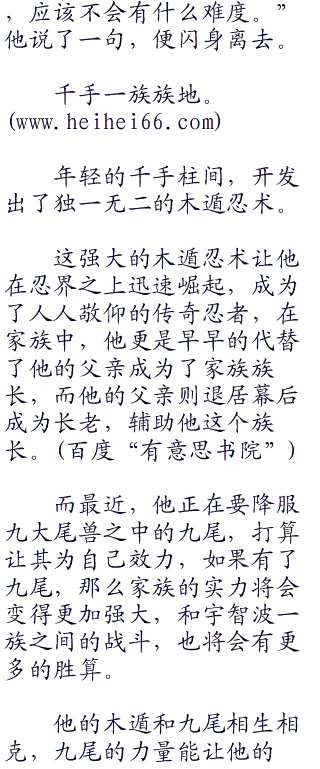 ，应该不会有什么难度。”
他说了一句，便闪身离去。
千手一族族地。
(www.heihei66.com)
年轻的千手柱间，开发
出了独一无二的木遁忍术。
这强大的木遁忍术让他
在忍界之上迅速崛起，成为
了人人敬仰的传奇忍者，在
家族中，他更是早早的代替
了他的父亲成为了家族族
长，而他的父亲则退居幕后
成为长老，辅助他这个族
长。(百度“有意思书院”)
而最近，他正在要降服
九大尾兽之中的九尾，打算
让其为自己效力，如果有了
九尾，那么家族的实力将会
变得更加强大，和宇智波一
族之间的战斗，也将会有更
多的胜算。
他的木遁和九尾相生相
克，九尾的力量能让他的